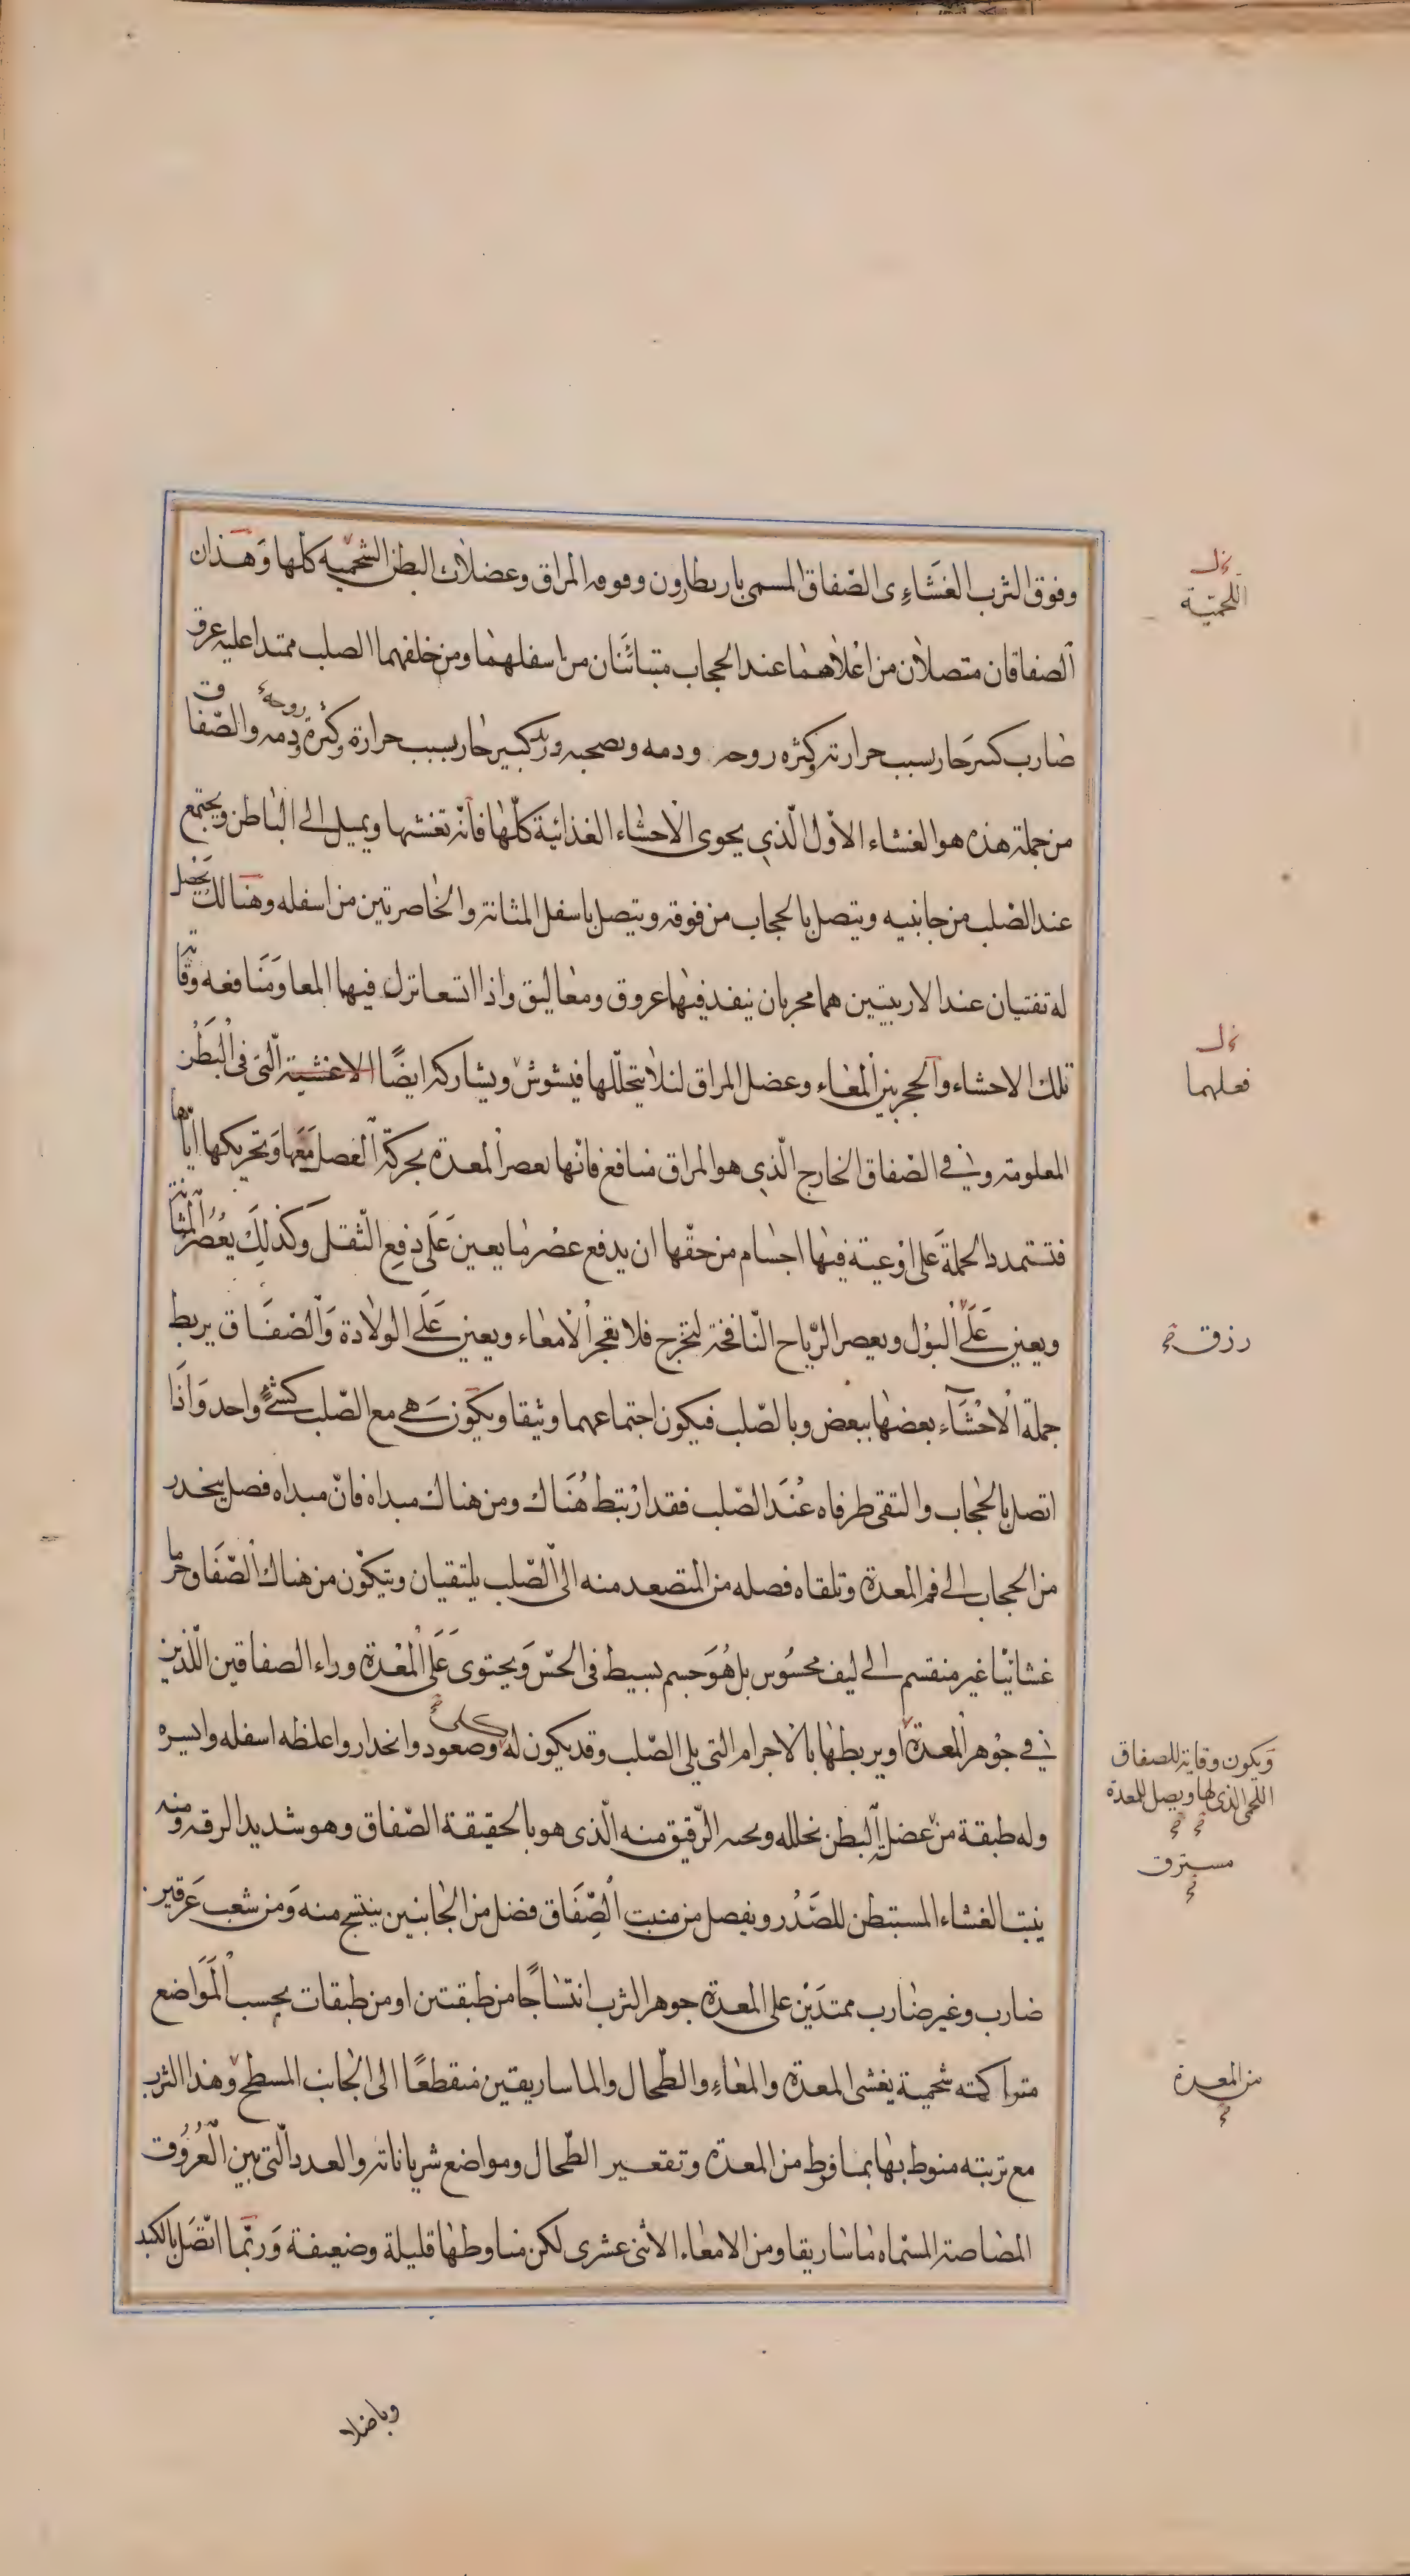 وفوق الثرب الغشاءى الصفاق المسمى باريطارون وفوقه المراق وعضلات البطن الشحميه كلها وهذان
الصفاقان متصلان من اعلاهما عند الحجاب متبائنان من اسفلهما ومن خلفهما الصلب ممتدا عليه عرق
ضارب كبير حار بسبب حرارته وكثره روحه ودمه ويصحبه وريد كبير حار بسبب حرارة وكثرة روحه ودمه والصفاق
من جملة هذه هو الغشاء الاول الذي يحوى الاحشاء الغذائية كلها فانه تغشيها ويميل الى الباطن ويجتمع
عند الصلب من جانبيه ويتصل بالحجاب من فوقه ويتصل باسفل المثانة والخاصرتين من اسفله وهنالك يحصل
له تفتيان عند الاربيتين هما مجريان ينفذ فيهما عروق ومعاليق واذا اتسعا نزل فيهما المعا ومنافعه وقاية
تلك الاحشاء والحجر بين المعاء وعضل المراق لئلا يتخللها فيشوش ويشاركه ايضًا الاغشية التى فى البطن
المعلومة وفي الصفاق الخارج الذي هو المراق منافع فانها تعصر المعدة بحركة العضل معها وتحريكها اياها
فتتمدد الجملة على اوعية فيها اجسام من حقها ان يدفع عصر ما يعين على دفع الثقل وكذلك يعصر المثانة
ويعين على البول ويعصر الرياح النافخة لتخرج فلا تعجز الامعاء ويعين على الولادة والصفاق يربط
جملة الاحشاء بعضها ببعض وبالصلب فيكون اجتماعهما وثيقا ويكون هي مع الصلب كشئ واحد واذا
اتصل بالحجاب والتقى طرفاه عند الصلب فقد ارتبط هناك ومن هناك مبداه فان مبداه فصل ينحدر
من الحجاب الى فم المعدة وتلقاه فصله من المتصعد منه الى الصلب يلتقيان ويتكون من هناك الصفاق جرما
غشائيا غير منقسم الى ليف محسوس بل هو جسم بسيط فى الحس ويحتوى على المعدة وراء الصفاقين اللذين
في جوهر المعدة او يربطها بالاجرام التى يلى الصلب وقد يكون له وصعود وانحدار واغلظه اسفله وايسره
وله طبقة من عضل البطن نخلله الرقيق منه الذى هو بالحقيقة الصفاق وهو شديد الرقه ومنه
ينبت الغشاء المستبطن للصدر ويفصل من منبت الصفاق فضل من الجانبين ينتسج منه ومن شعب عرقين
ضارب وغير ضارب ممتدين على المعدة جوهر الثرب انتساجًا من طبقتين او من طبقات بحسب المواضع
متراكمته شحمية يغشى المعدة والمعاء والطحال والماساريقين منقطعًا الى الجانب المسطح وهذا الثرب
مع تربته منوط بها بما فوط من المعدة وتقعير الطحال ومواضع شرياناته والعدد التى بين العروق
المصاصة المسماه ماساريقا ومن الامعاء الاثنى عشرى لكن مناوطها قليلة وضعيفة وربما اتصل بالكبد
اللحمية
فعلهما
رزق
ويكون وقاية للصفاق
اللحمى الذى لها ويصل للمعدة
مسترق
من المعدة
وباضلا